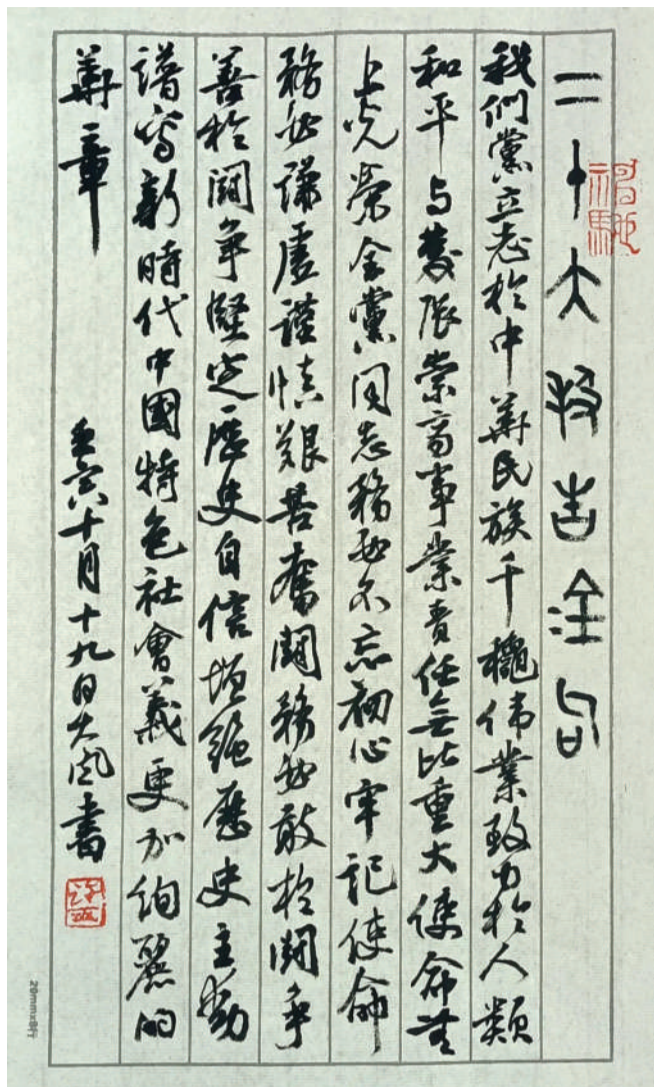 二十大报告金句
我們黨立志於中華民族千龝伟業致力於人類
和平与發展崇高事業責任無比重大使命無
上光榮全黨同志務必不忘初心牢記使命
務必謙虛謹慎艱苦奮鬪務必敢於鬪争
善於鬪争堅定歷史自信增強歷史主動
譜寫新時代中國特色社會義更加绚麗的
華章
壬寅十月十九日大风書
20mmx8行